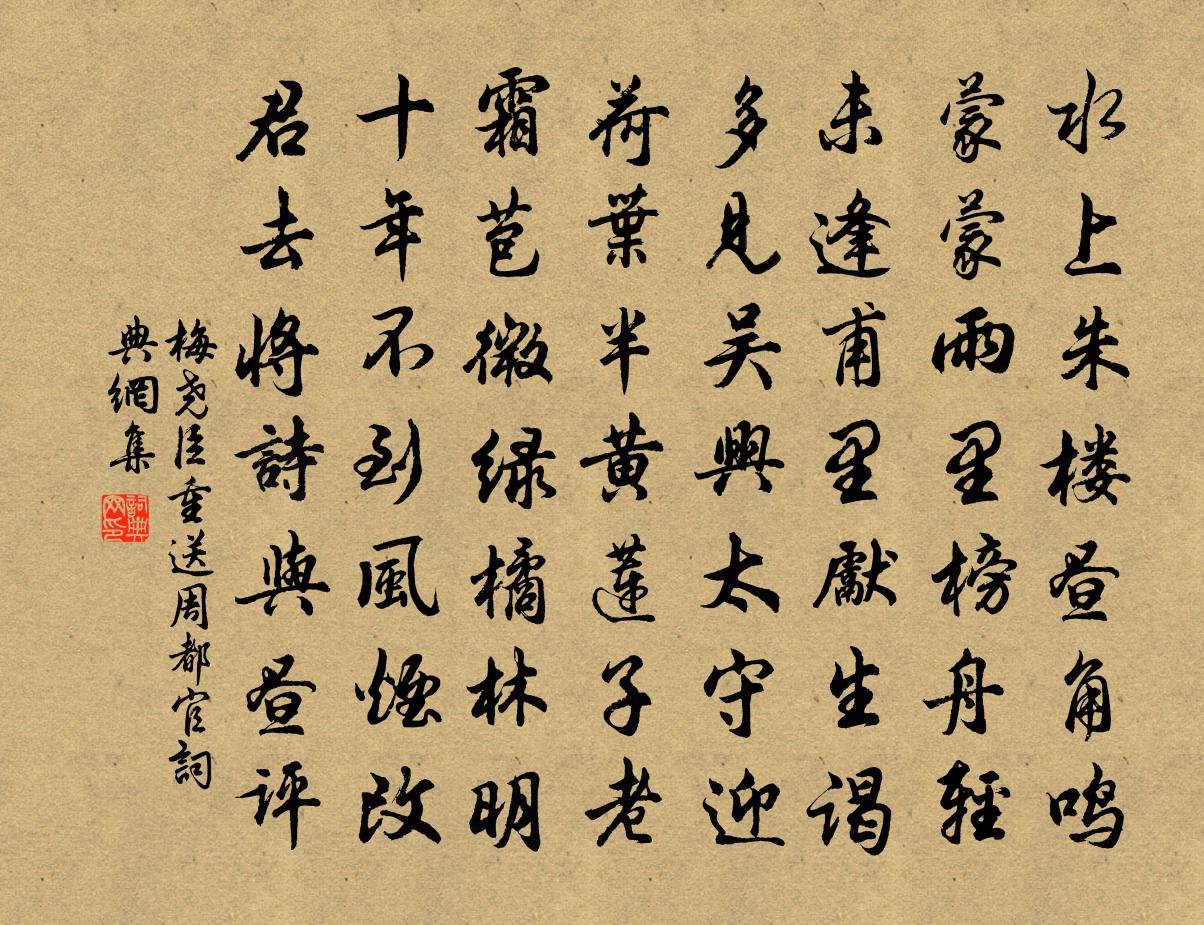 水上朱楼畫角鸣
蒙蒙雨里榜舟輕
未逢甫里獻生谒
多見吴興太守迎
荷葉半黄蓮子老
霜苞微绿橘林明
十年不到風煙改
君去將詩與畫评
梅尧臣重送周都官詞
典網集
詞典网印